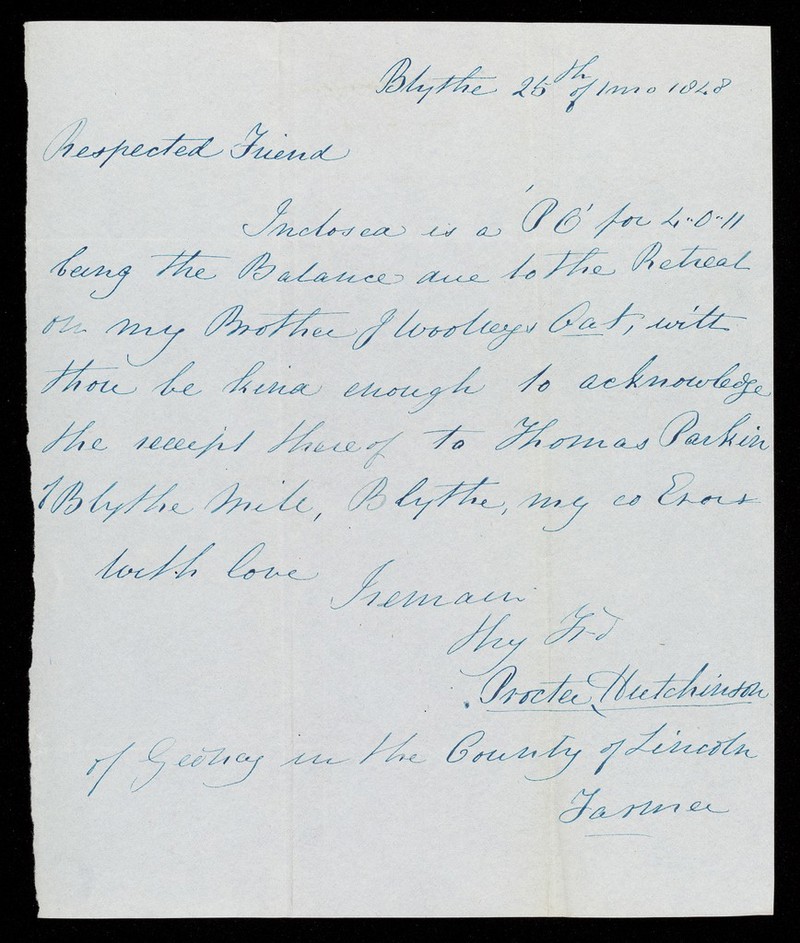 Blythe 25th of 1mo 1848
Respected Friend
Inclosed is a 'PO' for 4"0"11
being the Balance due to the Retreat
on my Brother J Woolleys Act, will
thou be kind enough to acknowledge
the receipt thereof to Thomas Parkin
Blythe Mill, Blythe, my co Exor
with love
I remain
thy Frd
Procter Hutchinson
of Gedney in the County of Lincoln
Farmer